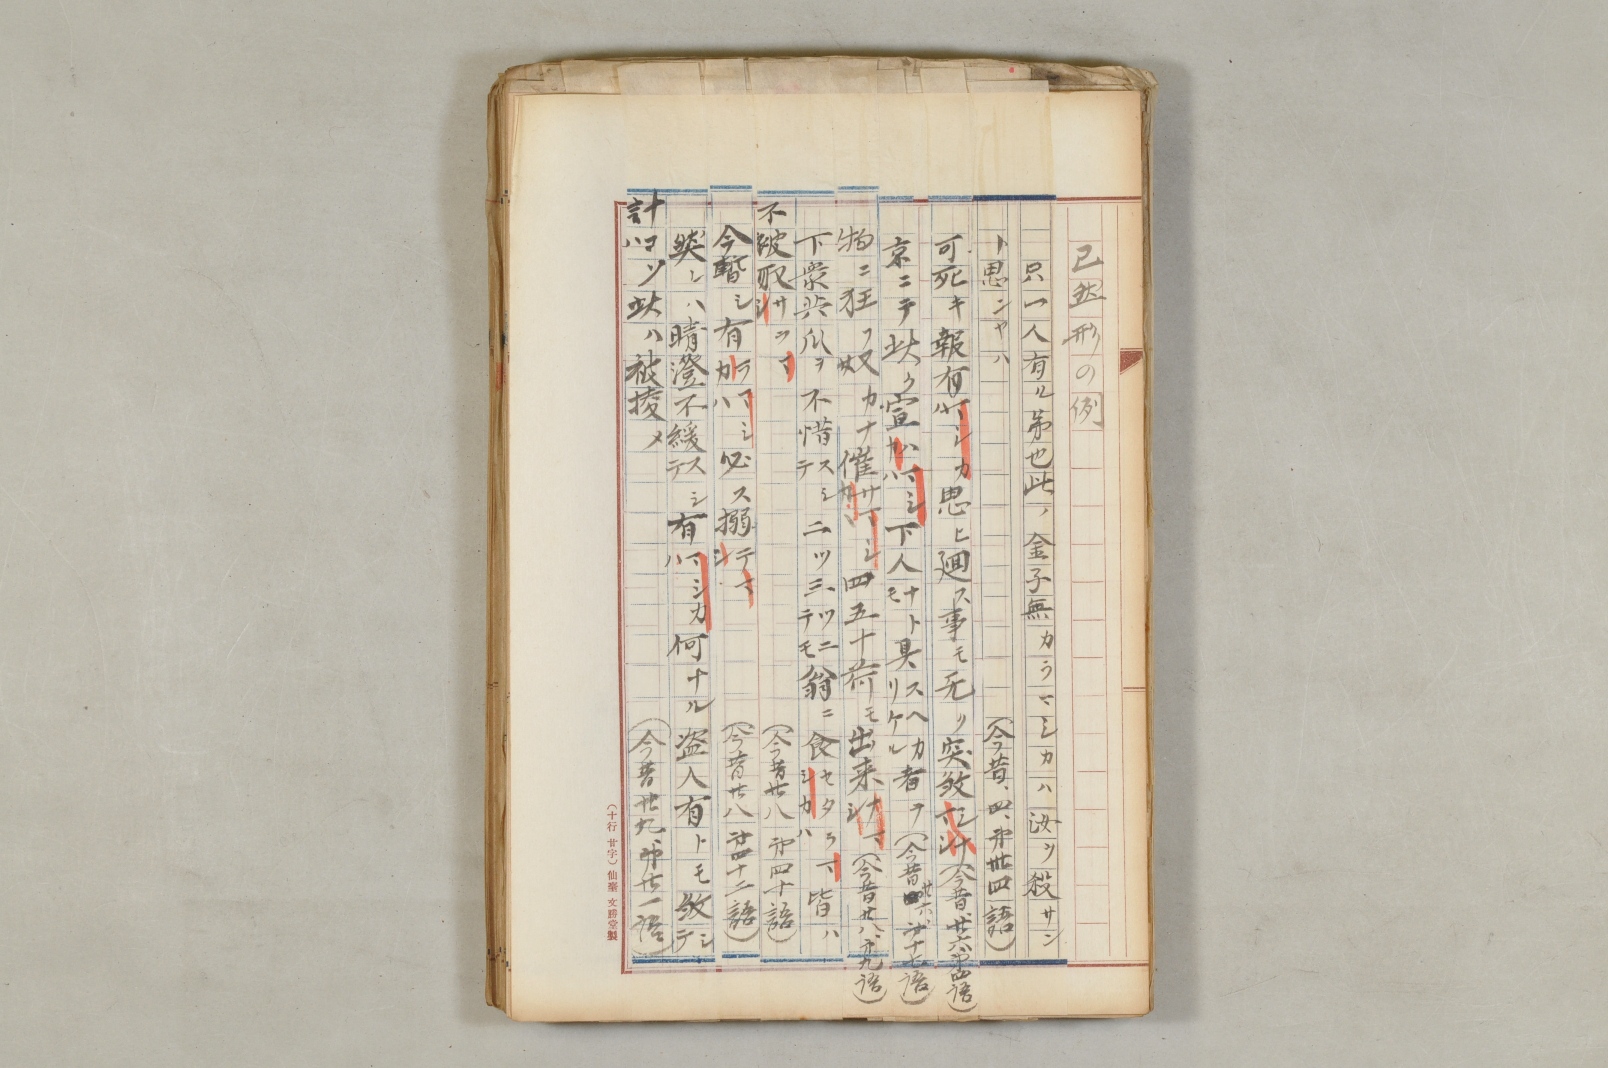 已然形の例
只一人有ル弟也此ノ金子無カラマシカハ汝ヲ殺サン
ト思ンヤハ
(今昔、四、第卅四語)
可死キ報有ハマシカ思ヒ廻ス事モ无ク突殺
(今昔、廿六第四語)
京ニテ此ク宣ハマシカハ下人ナトモ具スヘカリケル者ヲ
(今昔廿六、第十七語)
物ニ狂フ奴カナ催サマシカハ四五十荷モ出来ナマシ
(今昔廿八、第九語)
下衆共瓜ヲ不惜スシテ二ツ三ツニテモ翁ニ食セタラマシカハ皆ハ
不被取サラマシ
(今昔廿八第四十語)
今暫シ有ラマシカハ必ス搦テマシ
(今昔廿八第四十二語)
然レハ晴澄不緩スシテ有マシカハ何ナル盗人有トモ殺シテ
計コソ此ハ被掕メ
(今昔廿九、第廿一語)
(十行 廿字) 仙臺 文勝堂製